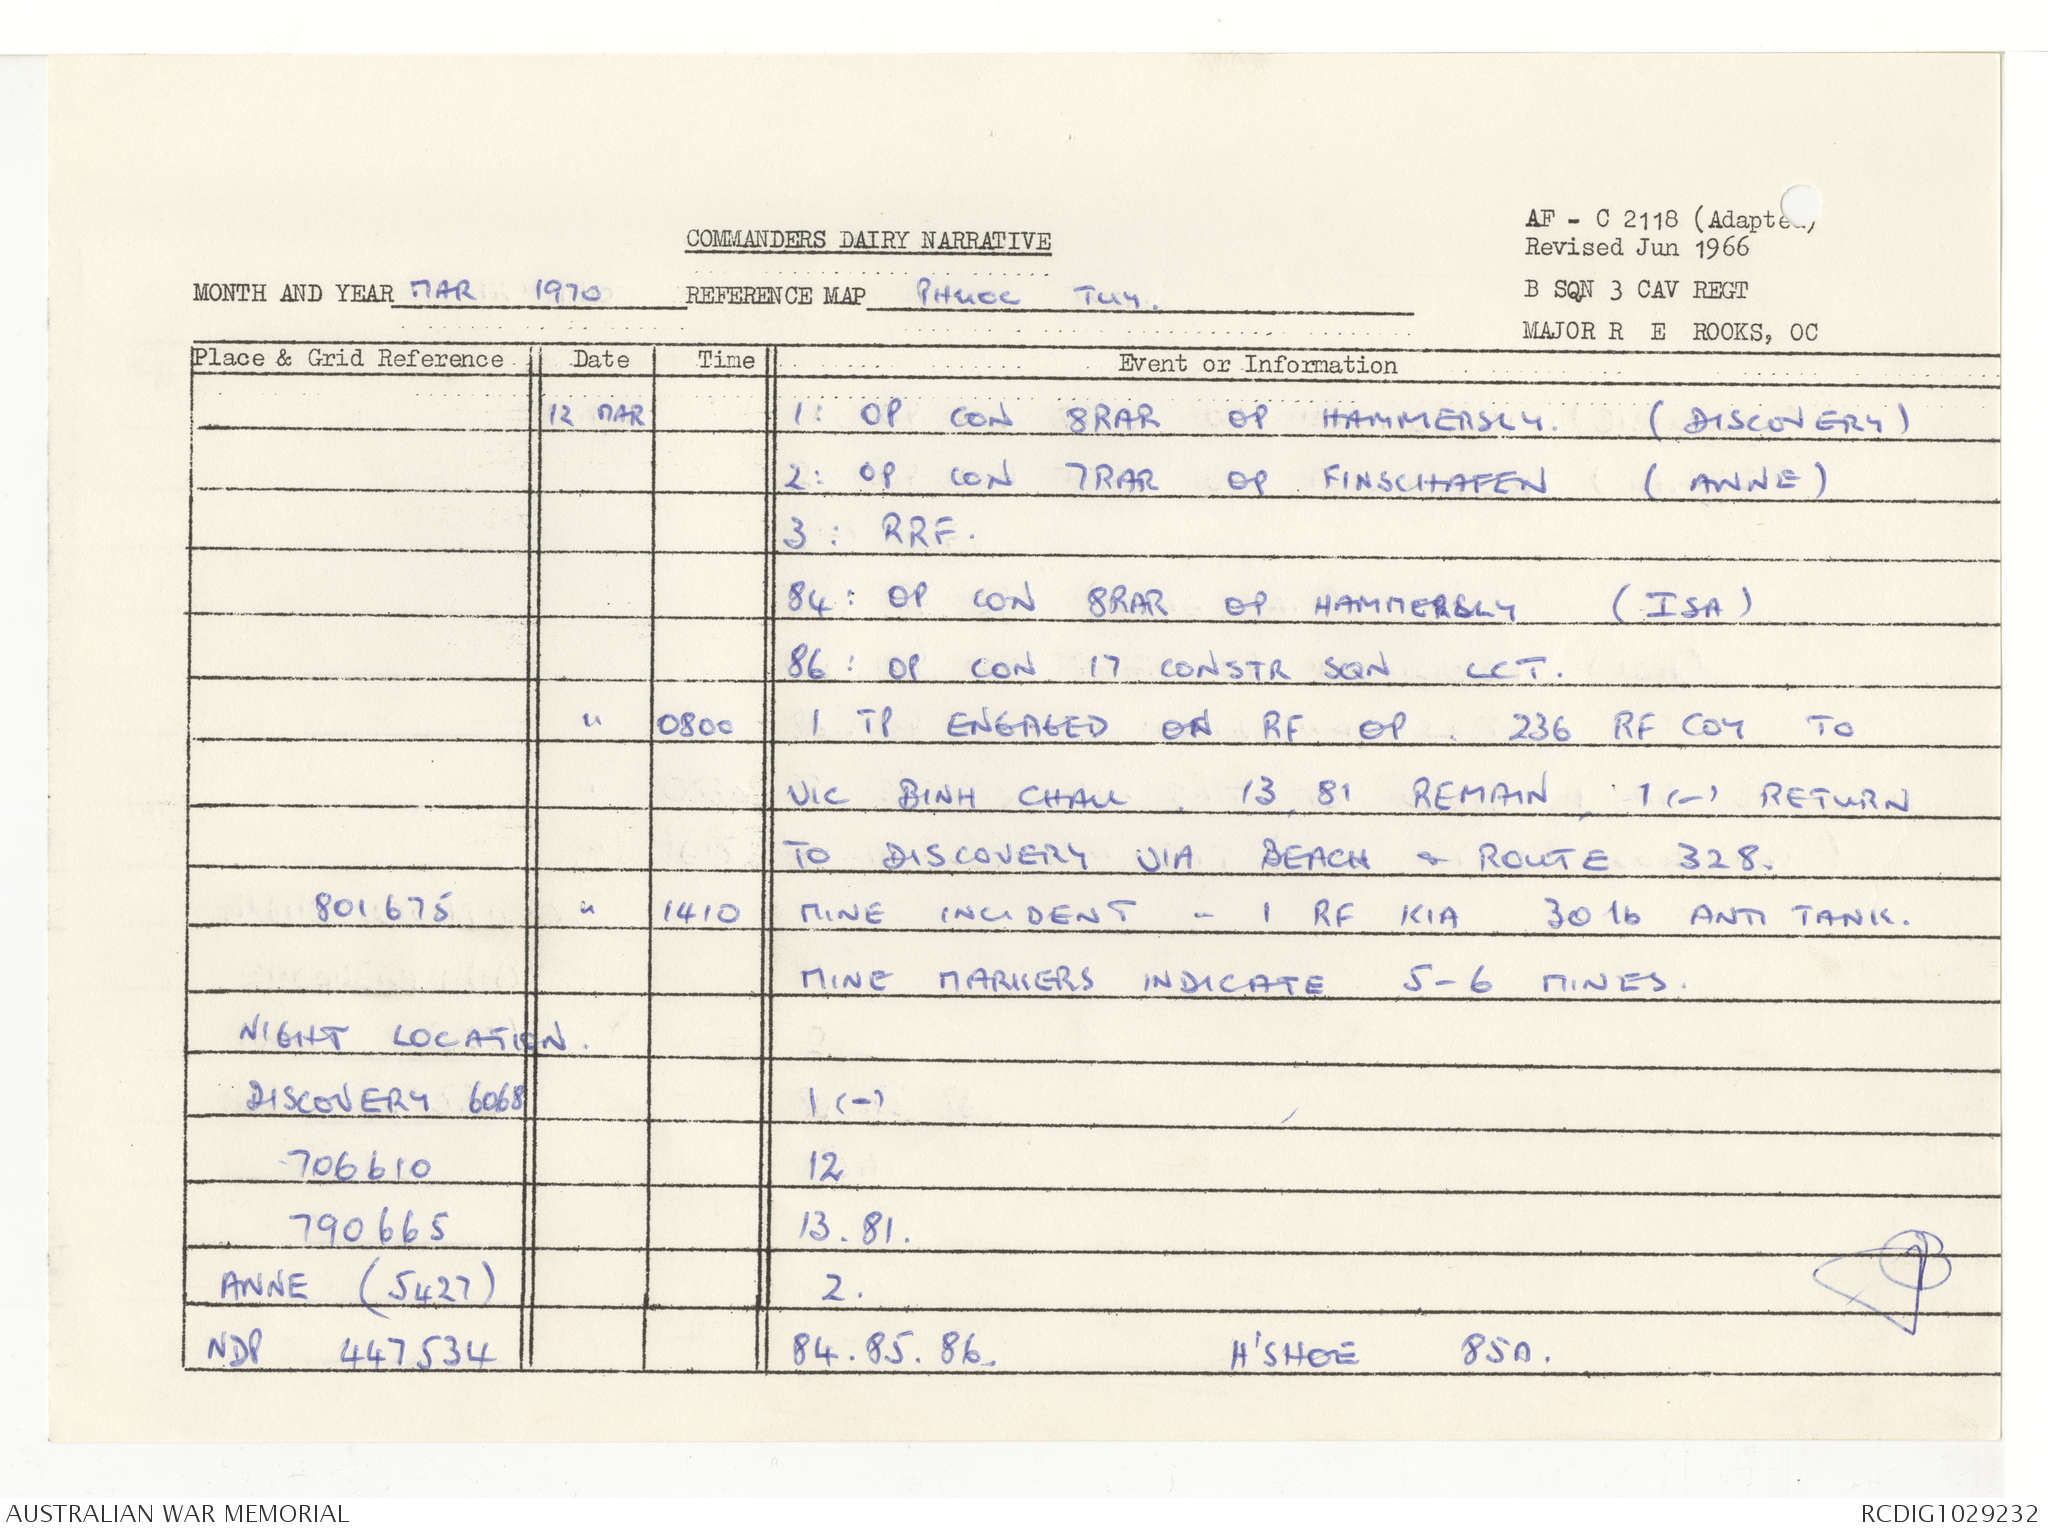 AF - C 2118 (Adapted)
Revised Jun 1966
COMMANDERS DAIRY NARRATIVE
B SQN 3 CAV REGT
MONTH AND YEAR MAR 1970 REFERENCE MAP PHUOC TUY.
MAJOR R E ROOKS, OC
Place & Grid Reference Date Time Event or Information
12 MAR 1: OP CON 8RAR OP HAMMERSLY. (DISCOVERY)
2: OP CON 7RAR OP FINSCHAFEN (ANNE)
3: RRF.
84: OP CON 8RAR OP HAMMERSLY (ISA)
86: OP CON 17 CONSTR SQN LCT.
" 0800 1 TP ENGAGED ON RF OP. 236 RF COY TO
VIC BINH CHAU. 13, 81 REMAIN, 1(-) RETURN
TO DISCOVERY VIA BEACH & ROUTE 328.
801675 " 1410 MINE INCIDENT - 1 RF KIA 30 lb ANTI TANK.
MINE MARKERS INDICATE 5-6 MINES.
NIGHT LOCATION.
DISCOVERY 6068 1(-)
706610 12
790665 13. 81.
ANNE (5427) 2.
NDP 447534 84. 85. 86. H'SHOE 85A.
AUSTRALIAN WAR MEMORIAL RCDIG1029232